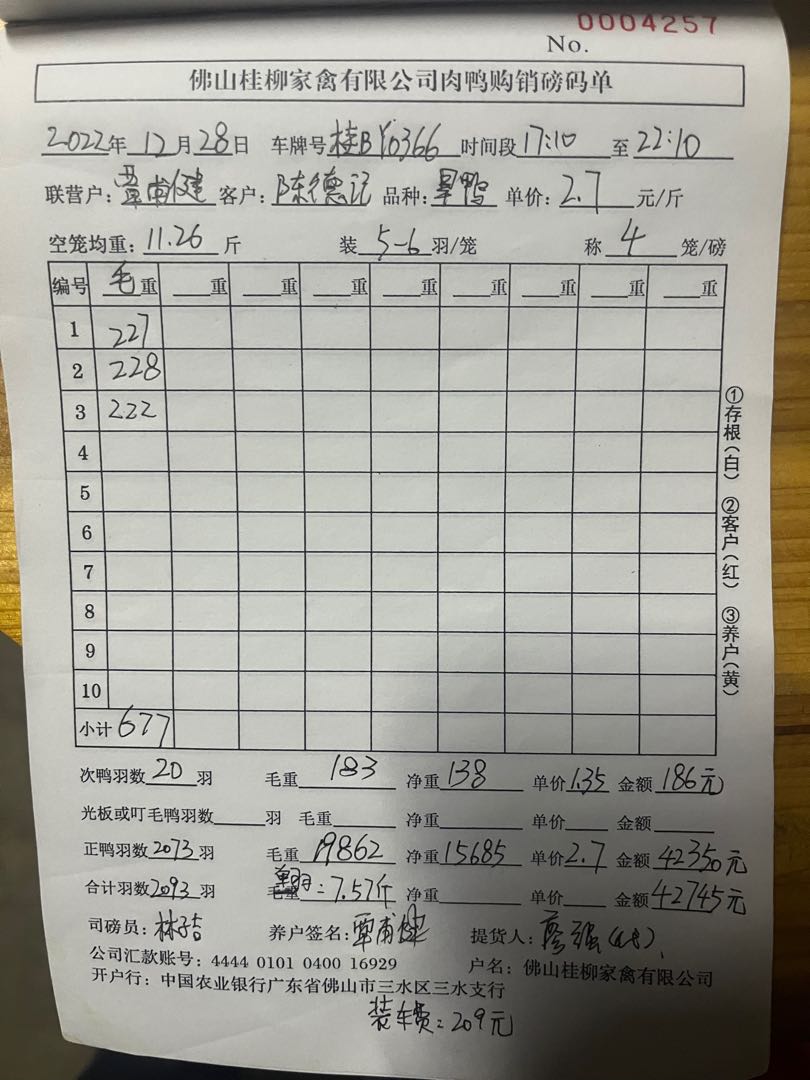 0004257
No.
佛山桂柳家禽有限公司肉鸭购销磅码单
2022年12月28日 车牌号桂BY0366 时间段17:10 至22:10
联营户:覃甫健 客户:陈德记 品种:旱鸭 单价:2.7元/斤
空笼均重:11.26斤 装5-6羽/笼 称4笼/磅
编号 毛重 ___重 ___重 ___重 ___重 ___重 ___重 ___重 ___重
1 227
2 228
3 222
4
5
6
7
8
9
10
小计 677
①存根(白) ②客户(红) ③养户(黄)
次鸭羽数20羽 毛重183 净重138 单价1.35 金额186元
光板或叮毛鸭羽数___羽 毛重___ 净重___ 单价___ 金额___
正鸭羽数2073羽 毛重19862 净重15685 单价2.7 金额42350元
合计羽数2093羽 毛重 :7.57斤 净重___ 单价___ 金额42745元
司磅员:林子吉 养户签名:覃甫健 提货人:
公司汇款账号:4444 0101 0400 16929 户名:佛山桂柳家禽有限公司
开户行:中国农业银行广东省佛山市三水区三水支行
装车费:209元